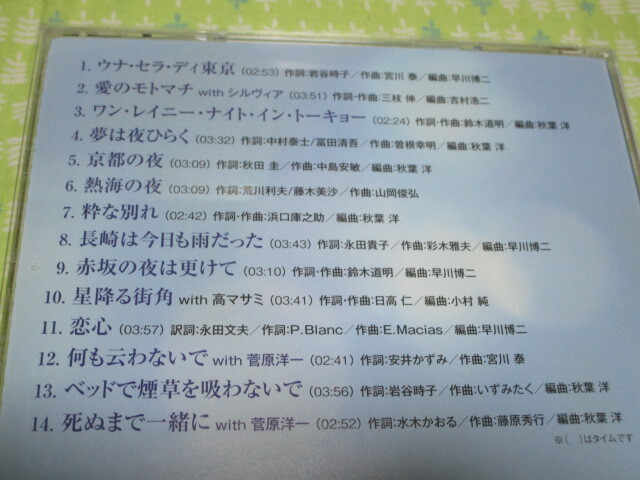 1. ウナ・セラ・ディ東京 (02:53) 作詞:岩谷時子／作曲:宮川 泰／編曲:早川博二
2. 愛のモトマチ with シルヴィア (03:51) 作詞・作曲:三枝 伸／編曲:吉村浩二
3. ワン・レイニー・ナイト・イン・トーキョー (02:24) 作詞・作曲:鈴木道明／編曲:秋葉 洋
4. 夢は夜ひらく (03:32) 作詞:中村泰士/冨田清吾／作曲:曽根幸明／編曲:秋葉 洋
5. 京都の夜 (03:09) 作詞:秋田 圭／作曲:中島安敏／編曲:秋葉 洋
6. 熱海の夜 (03:09) 作詞:荒川利夫/藤木美沙／作曲:山岡俊弘
7. 粋な別れ (02:42) 作詞・作曲:浜口庫之助／編曲:秋葉 洋
8. 長崎は今日も雨だった (03:43) 作詞:永田貴子／作曲:彩木雅夫／編曲:早川博二
9. 赤坂の夜は更けて (03:10) 作詞・作曲:鈴木道明／編曲:早川博二
10. 星降る街角 with 高マサミ (03:41) 作詞・作曲:日高 仁／編曲:小村 純
11. 恋心 (03:57) 訳詞:永田文夫／作詞:P.Blanc／作曲:E.Macias／編曲:早川博二
12. 何も云わないで with 菅原洋一 (02:41) 作詞:安井かずみ／作曲:宮川 泰
13. ベッドで煙草を吸わないで (03:56) 作詞:岩谷時子／作曲:いずみたく／編曲:秋葉 洋
14. 死ぬまで一緒に with 菅原洋一 (02:52) 作詞:水木かおる／作曲:藤原秀行／編曲:秋葉 洋
※( )はタイムです